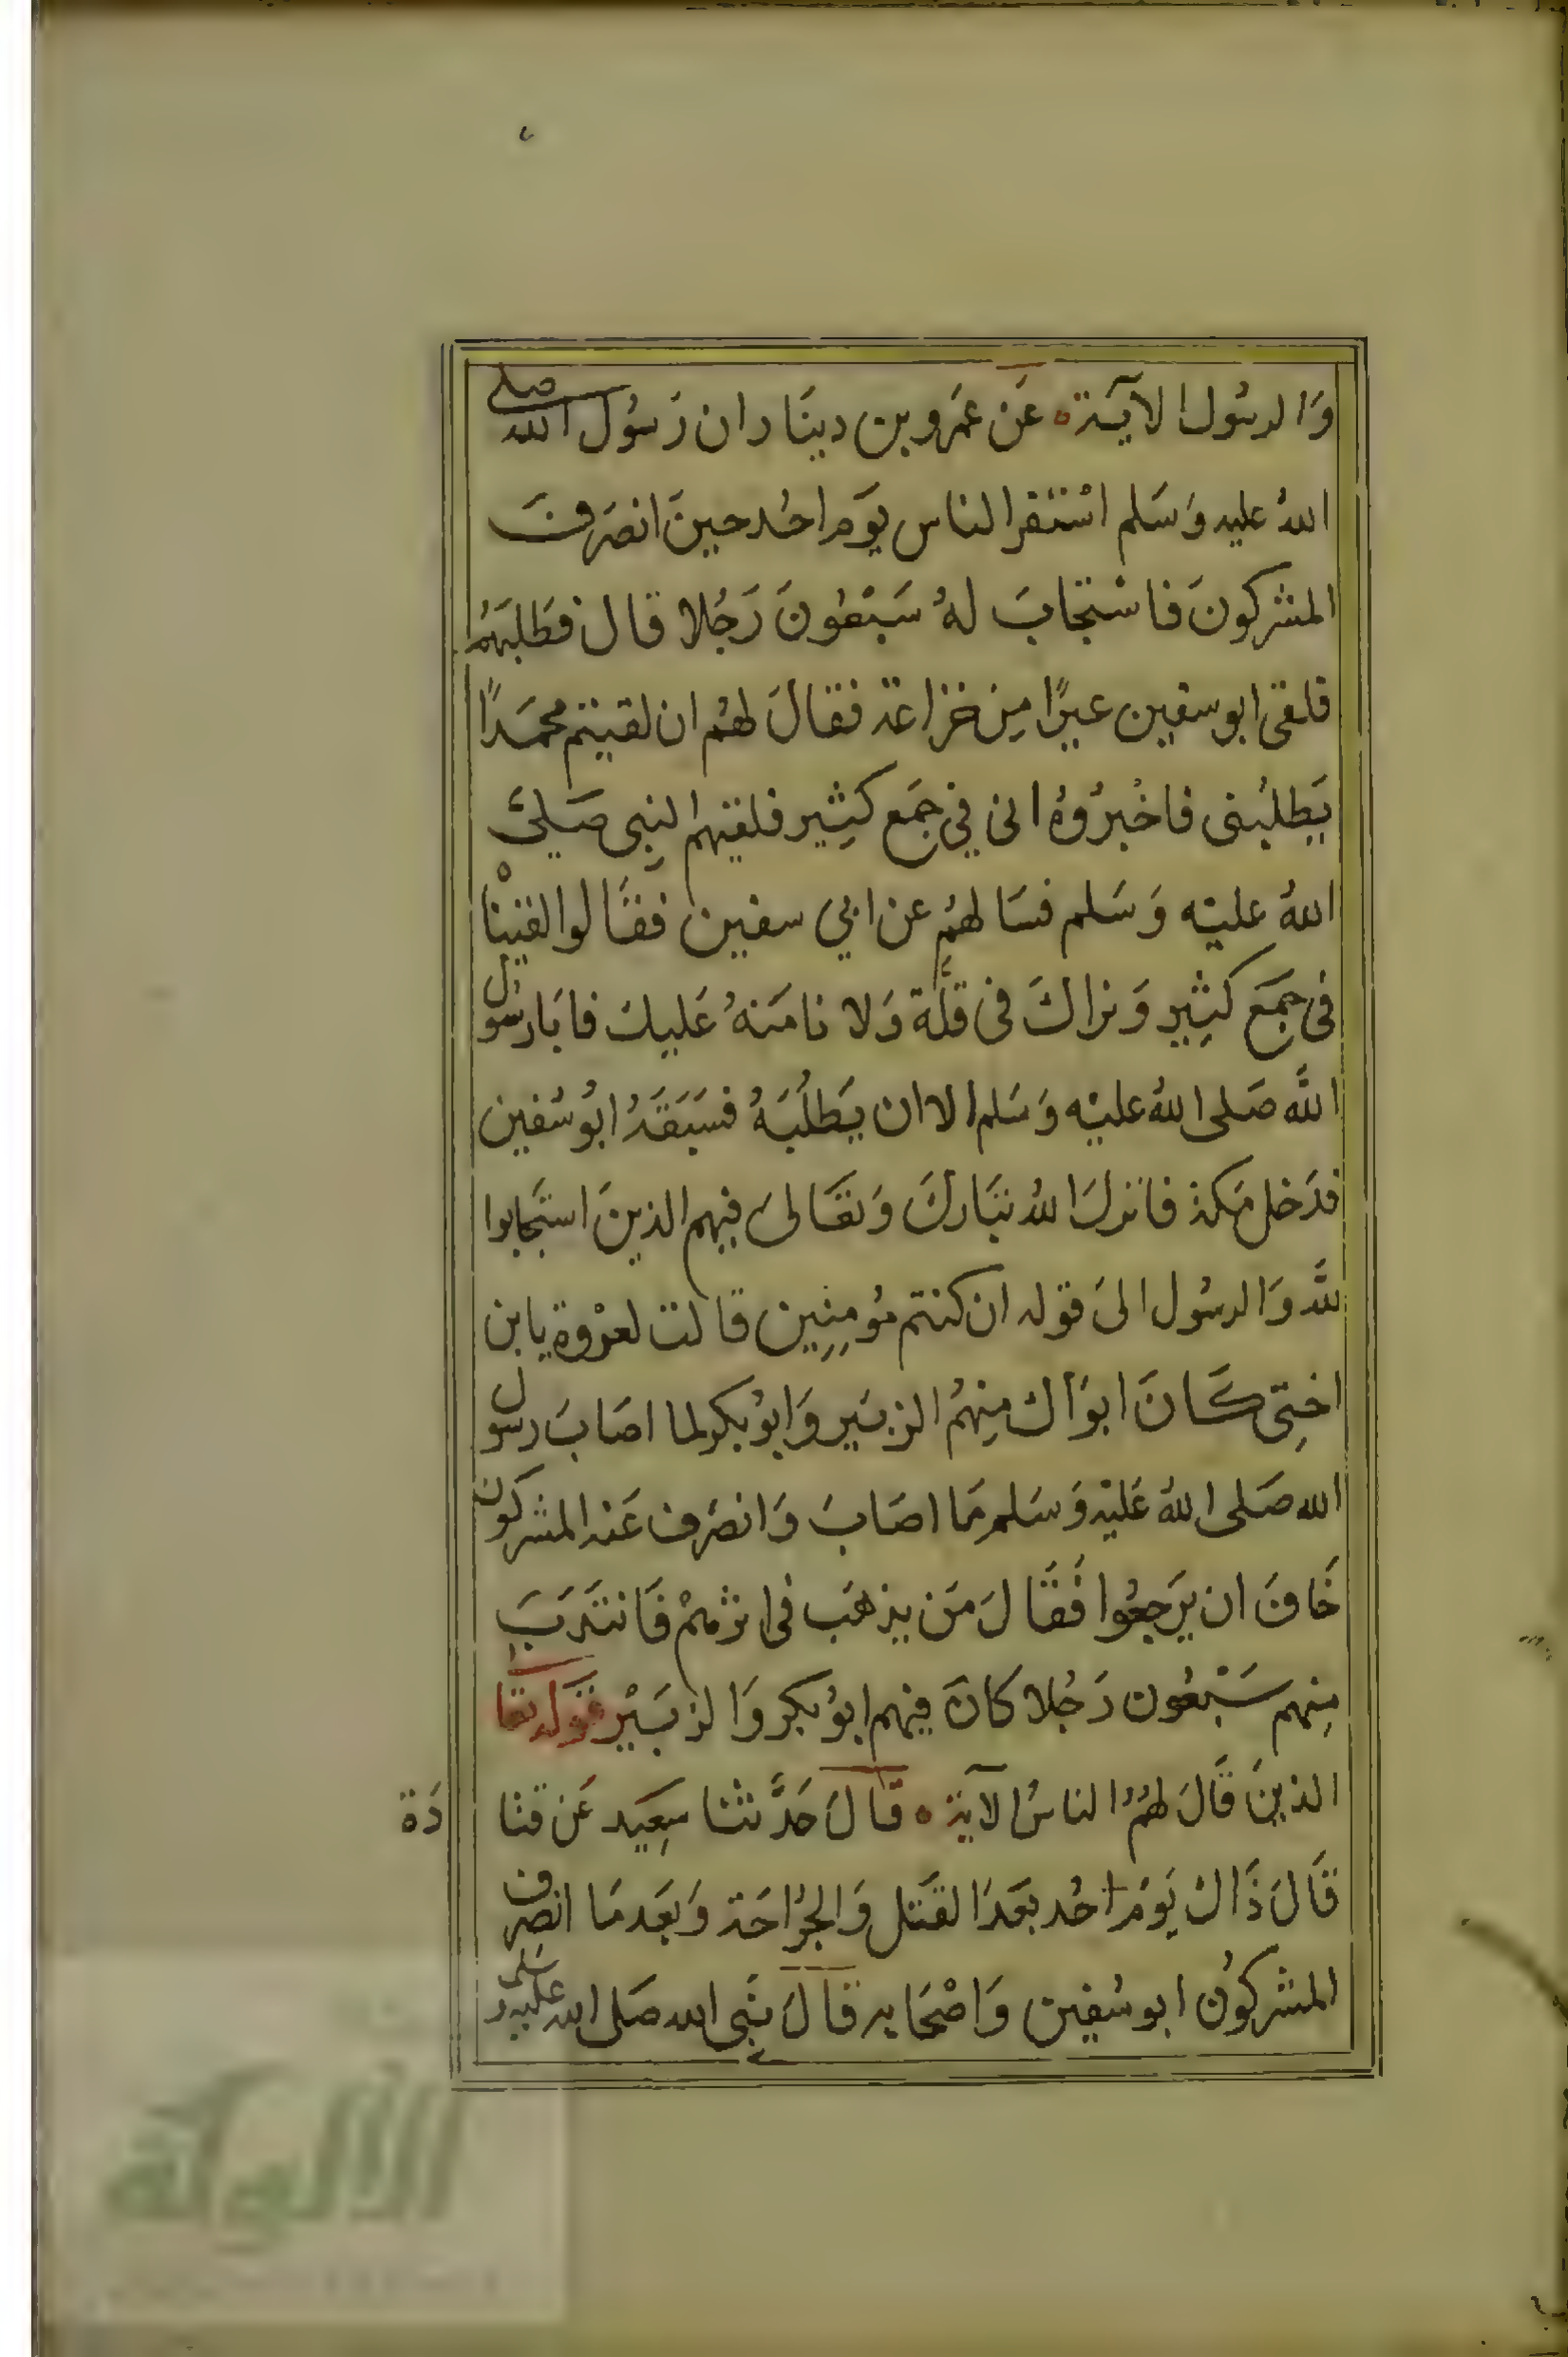 وَالرسُول الآيـة ٥ عَن عَمَرو بن دينَار ان رَسُول الله صلى
اللهُ عليه وَسَلم اسْتنفر الناس يَوم احُد حينَ انصَرفَ
المشركونَ فاسْتجَابَ لهُ سَبْعُونَ رَجُلا قال فطَلبَهُم
فلقى ابو سفين عيرًا مِن خزاعة فقالَ لهُم ان لقيتم محمَدًا
يَطلبُنى فاخْبرُوهُ انى في جمَع كثِير فلقيهم النبِى صَلىَ
اللهُ عليْه وَسَلم فسَالهُم عن ابي سفين فقَالوا لقينْاه
فى جمَع كثِير وَنراكَ فى قلَّة وَلا نامَنهُ عَليكَ فابَا رسُول
اللَّه صَلى اللهُ عليْه وَسَلم الا ان يَطلُبَهُ فسَبَقَهُ ابُو سُفين
فدَخل مَكة فانزلَ اللهُ تبَاركَ وَتعَالىَ فيهم الذينَ استجَابوا
للَّه وَالرسُول الىَ قوله ان كنتم مُومِنِين قالت لعرْوة يابن
اختِى كَانَ ابوَاك مِنهمُ الزبَير وَابُو بكر لما اصَابَ رسول
الله صَلى اللهُ عَليْه وَسَلم مَا اصَابَ وَانصَرف عَنه المشركون
خَافَ ان يَرجعُوا فقَالَ مَن يذهَب فى اثرهمْ فَانتَدبَ
مِنهم سَبْعُون رَجُلا كانَ فيهم ابوُ بكر وَالزبَيْر قوله تعَا
الذينَ قَالَ لهُمُ الناسُ الآية ٥ قالَ حَدَّثنا سعِيَد عَن قتادَة
قَالَ ذَاكَ يَومَ احُد بعَدَ القَتل وَالجرُاحَة وَبعَد مَا انصرف
المشركوُن ابو سُفين وَاصْحَابه قالَ نبَى الله صَلى الله عليه وسَلم
الألوكة